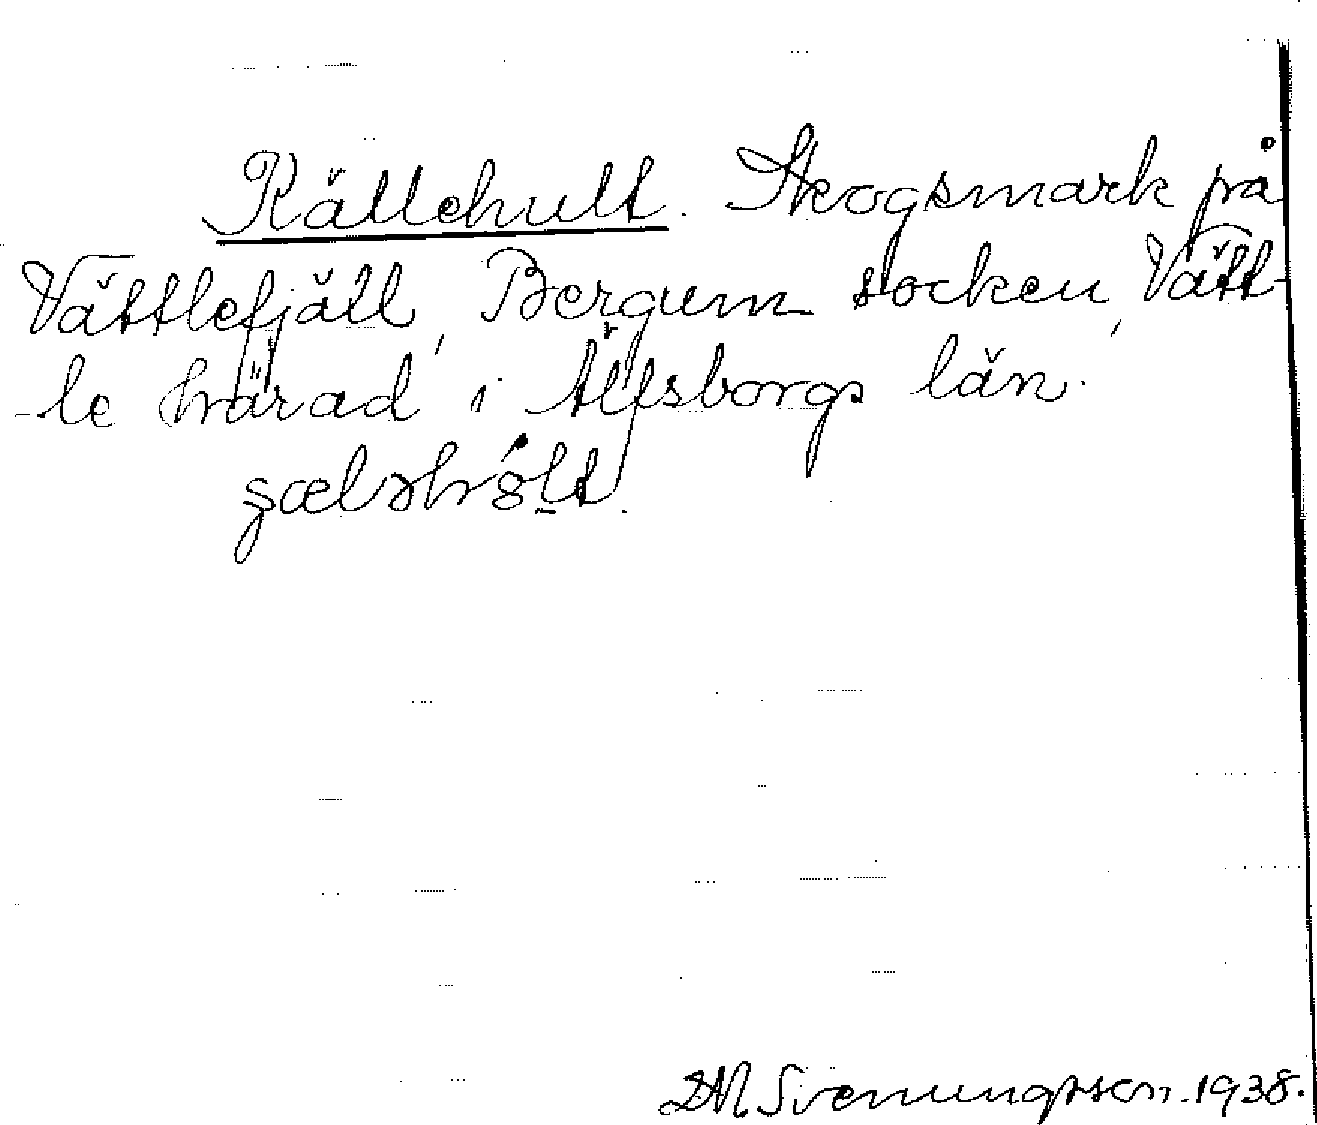 Källehult. Skogsmark på
Vättlefjäll, Bergum socken, Vätt-
-le härad i Älfsborgs län.
Svenungsson. 1938.